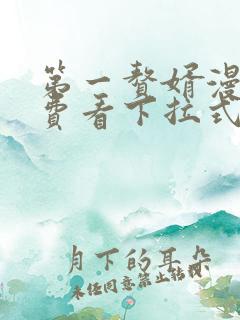 第一赘婿漫
费看下拉式
月下的耳朵
未经同意禁止转载